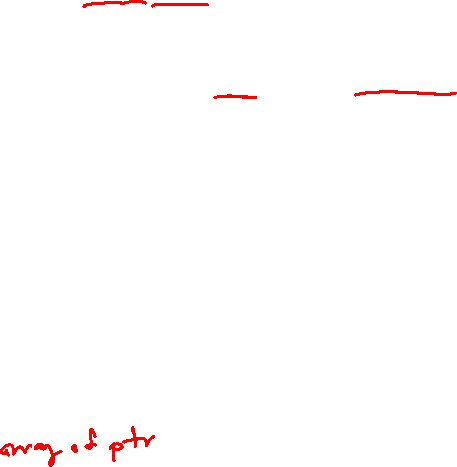 array of ptr